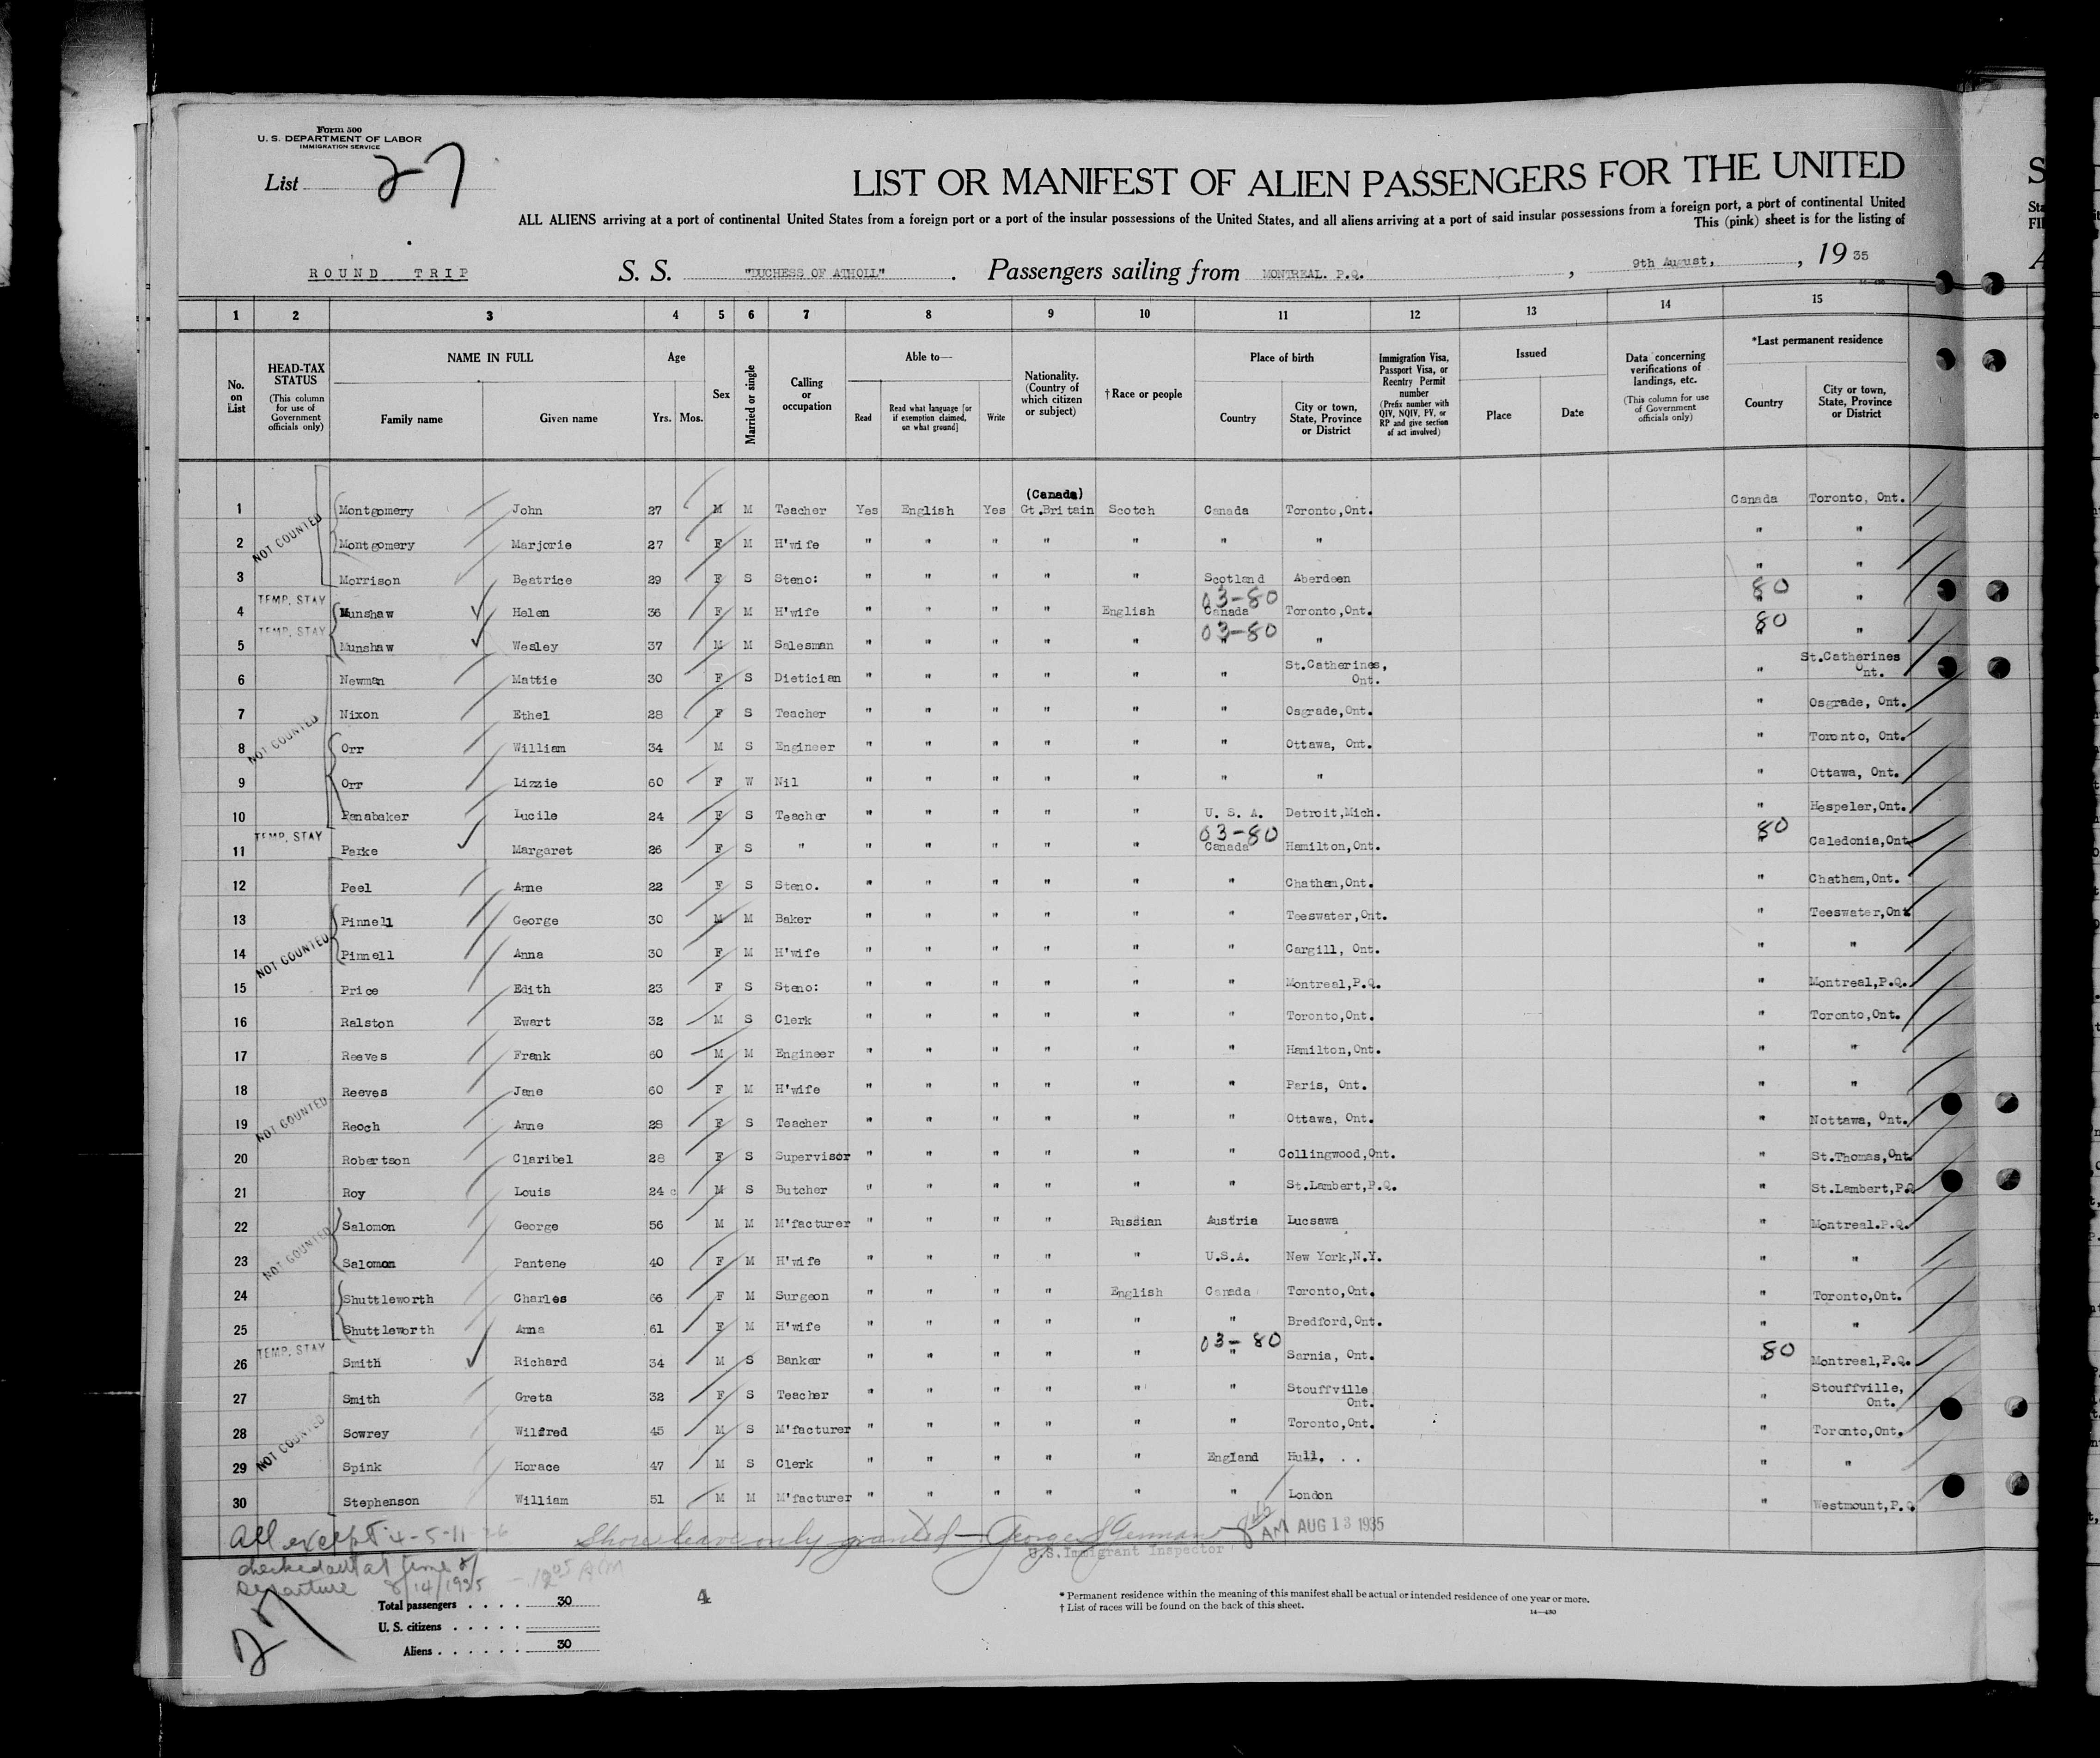 Form 500
U. S. DEPARTMENT OF LABOR
IMMIGRATION SERVICE
List 27
LIST OR MANIFEST OF ALIEN PASSENGERS FOR THE UNITED
ALL ALIENS arriving at a port of continental United States from a foreign port or a port of the insular possessions of the United States, and all aliens arriving at a port of said insular possessions from a foreign port, a port of continental United
This (pink) sheet is for the listing of
ROUND TRIP S. S. "DUCHESS OF ATHOLL". Passengers sailing from MONTREAL. P.Q. , 9th August, , 19 35
1 2 3 4 5 6 7 8 9 10 11 12 13 14 15
No. on List
HEAD-TAX STATUS (This column for use of Government officials only)
NAME IN FULL Family name Given name
Age Yrs. Mos.
Sex
Married or single
Calling or occupation
Able to— Read Read what language [or if exemption claimed, on what ground] Write
Nationality. (Country of which citizen or subject)
† Race or people
Place of birth Country City or town, State, Province or District
Immigration Visa, Passport Visa, or Reentry Permit number (Prefix number with QIV, NQIV, PV, or RP and give section of act involved)
Issued Place Date
Data concerning verifications of landings, etc. (This column for use of Government officials only)
*Last permanent residence Country City or town, State, Province or District
1 Montgomery John 27 M M Teacher Yes English Yes (Canada) Gt.Britain Scotch Canada Toronto,Ont. Canada Toronto, Ont.
NOT COUNTED
2 Montgomery Marjorie 27 F M H'wife " " " " " " " " "
3 Morrison Beatrice 29 F S Steno: " " " " " Scotland Aberdeen " "
TEMP. STAY 03-80 80
4 Munshaw Helen 36 F M H'wife " " " " English Canada Toronto,Ont. " "
TEMP. STAY 03-80 80
5 Munshaw Wesley 37 M M Salesman " " " " " " " " "
6 Newman Mattie 30 F S Dietician " " " " " " St.Catherines, Ont. " St.Catherines Ont.
7 Nixon Ethel 28 F S Teacher " " " " " " Osgrade,Ont. " Osgrade, Ont.
NOT COUNTED
8 Orr William 34 M S Engineer " " " " " " Ottawa, Ont. " Toronto, Ont.
9 Orr Lizzie 60 F W Nil " " " " " " " " Ottawa, Ont.
10 Panabaker Lucile 24 F S Teacher " " " " " U. S. A. Detroit,Mich. " Hespeler,Ont.
TEMP. STAY 03-80 80
11 Parke Margaret 26 F S " " " " " " Canada Hamilton,Ont. " Caledonia,Ont
12 Peel Anne 22 F S Steno. " " " " " " Chatham,Ont. " Chatham,Ont.
13 Pinnell George 30 M M Baker " " " " " " Teeswater,Ont. " Teeswater,Ont
NOT COUNTED
14 Pinnell Anna 30 F M H'wife " " " " " " Cargill, Ont. " "
15 Price Edith 23 F S Steno: " " " " " " Montreal,P.Q. " Montreal,P.Q.
16 Ralston Ewart 32 M S Clerk " " " " " " Toronto,Ont. " Toronto,Ont.
17 Reeves Frank 60 M M Engineer " " " " " " Hamilton,Ont. " "
18 Reeves Jane 60 F M H'wife " " " " " " Paris, Ont. " "
NOT COUNTED
19 Reoch Anne 28 F S Teacher " " " " " " Ottawa, Ont. " Nottawa, Ont.
20 Robertson Claribel 28 F S Supervisor " " " " " " Collingwood,Ont. " St.Thomas,Ont
21 Roy Louis 24 M S Butcher " " " " " " St.Lambert,P.Q. " St.Lambert,P.Q
22 Salomon George 56 M M M'facturer " " " " Russian Austria Lucsawa " Montreal.P.Q.
NOT COUNTED
23 Salomon Pantene 40 F M H'wife " " " " " U.S.A. New York,N.Y. " "
24 Shuttleworth Charles 66 F M Surgeon " " " " English Canada Toronto,Ont. " Toronto,Ont.
25 Shuttleworth Anna 61 F M H'wife " " " " " " Bredford,Ont. " "
TEMP. STAY 03-80 80
26 Smith Richard 34 M S Banker " " " " " " Sarnia, Ont. " Montreal,P.Q.
27 Smith Greta 32 F S Teacher " " " " " " Stouffville Ont. " Stouffville, Ont.
28 Sowrey Wilfred 45 M S M'facturer " " " " " " Toronto,Ont. " Toronto,Ont.
NOT COUNTED
29 Spink Horace 47 M S Clerk " " " " " England Hull. . . " "
30 Stephenson William 51 M M M'facturer " " " " " " London " Westmount,P.Q
All except 4-5-11-26 Shore leave only granted — AM AUG 13 1935
U.S. Immigrant Inspector
checked out at time of
Departure 8/14/1935 - 12 05 AM
27
Total passengers . . . . 30
4
U. S. citizens . . . . .
Aliens . . . . . . 30
* Permanent residence within the meaning of this manifest shall be actual or intended residence of one year or more.
† List of races will be found on the back of this sheet.
14—430